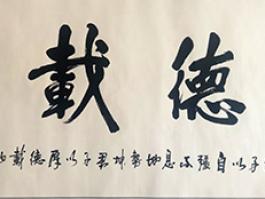 德載
子以自彊不息地勢坤君子以厚德載